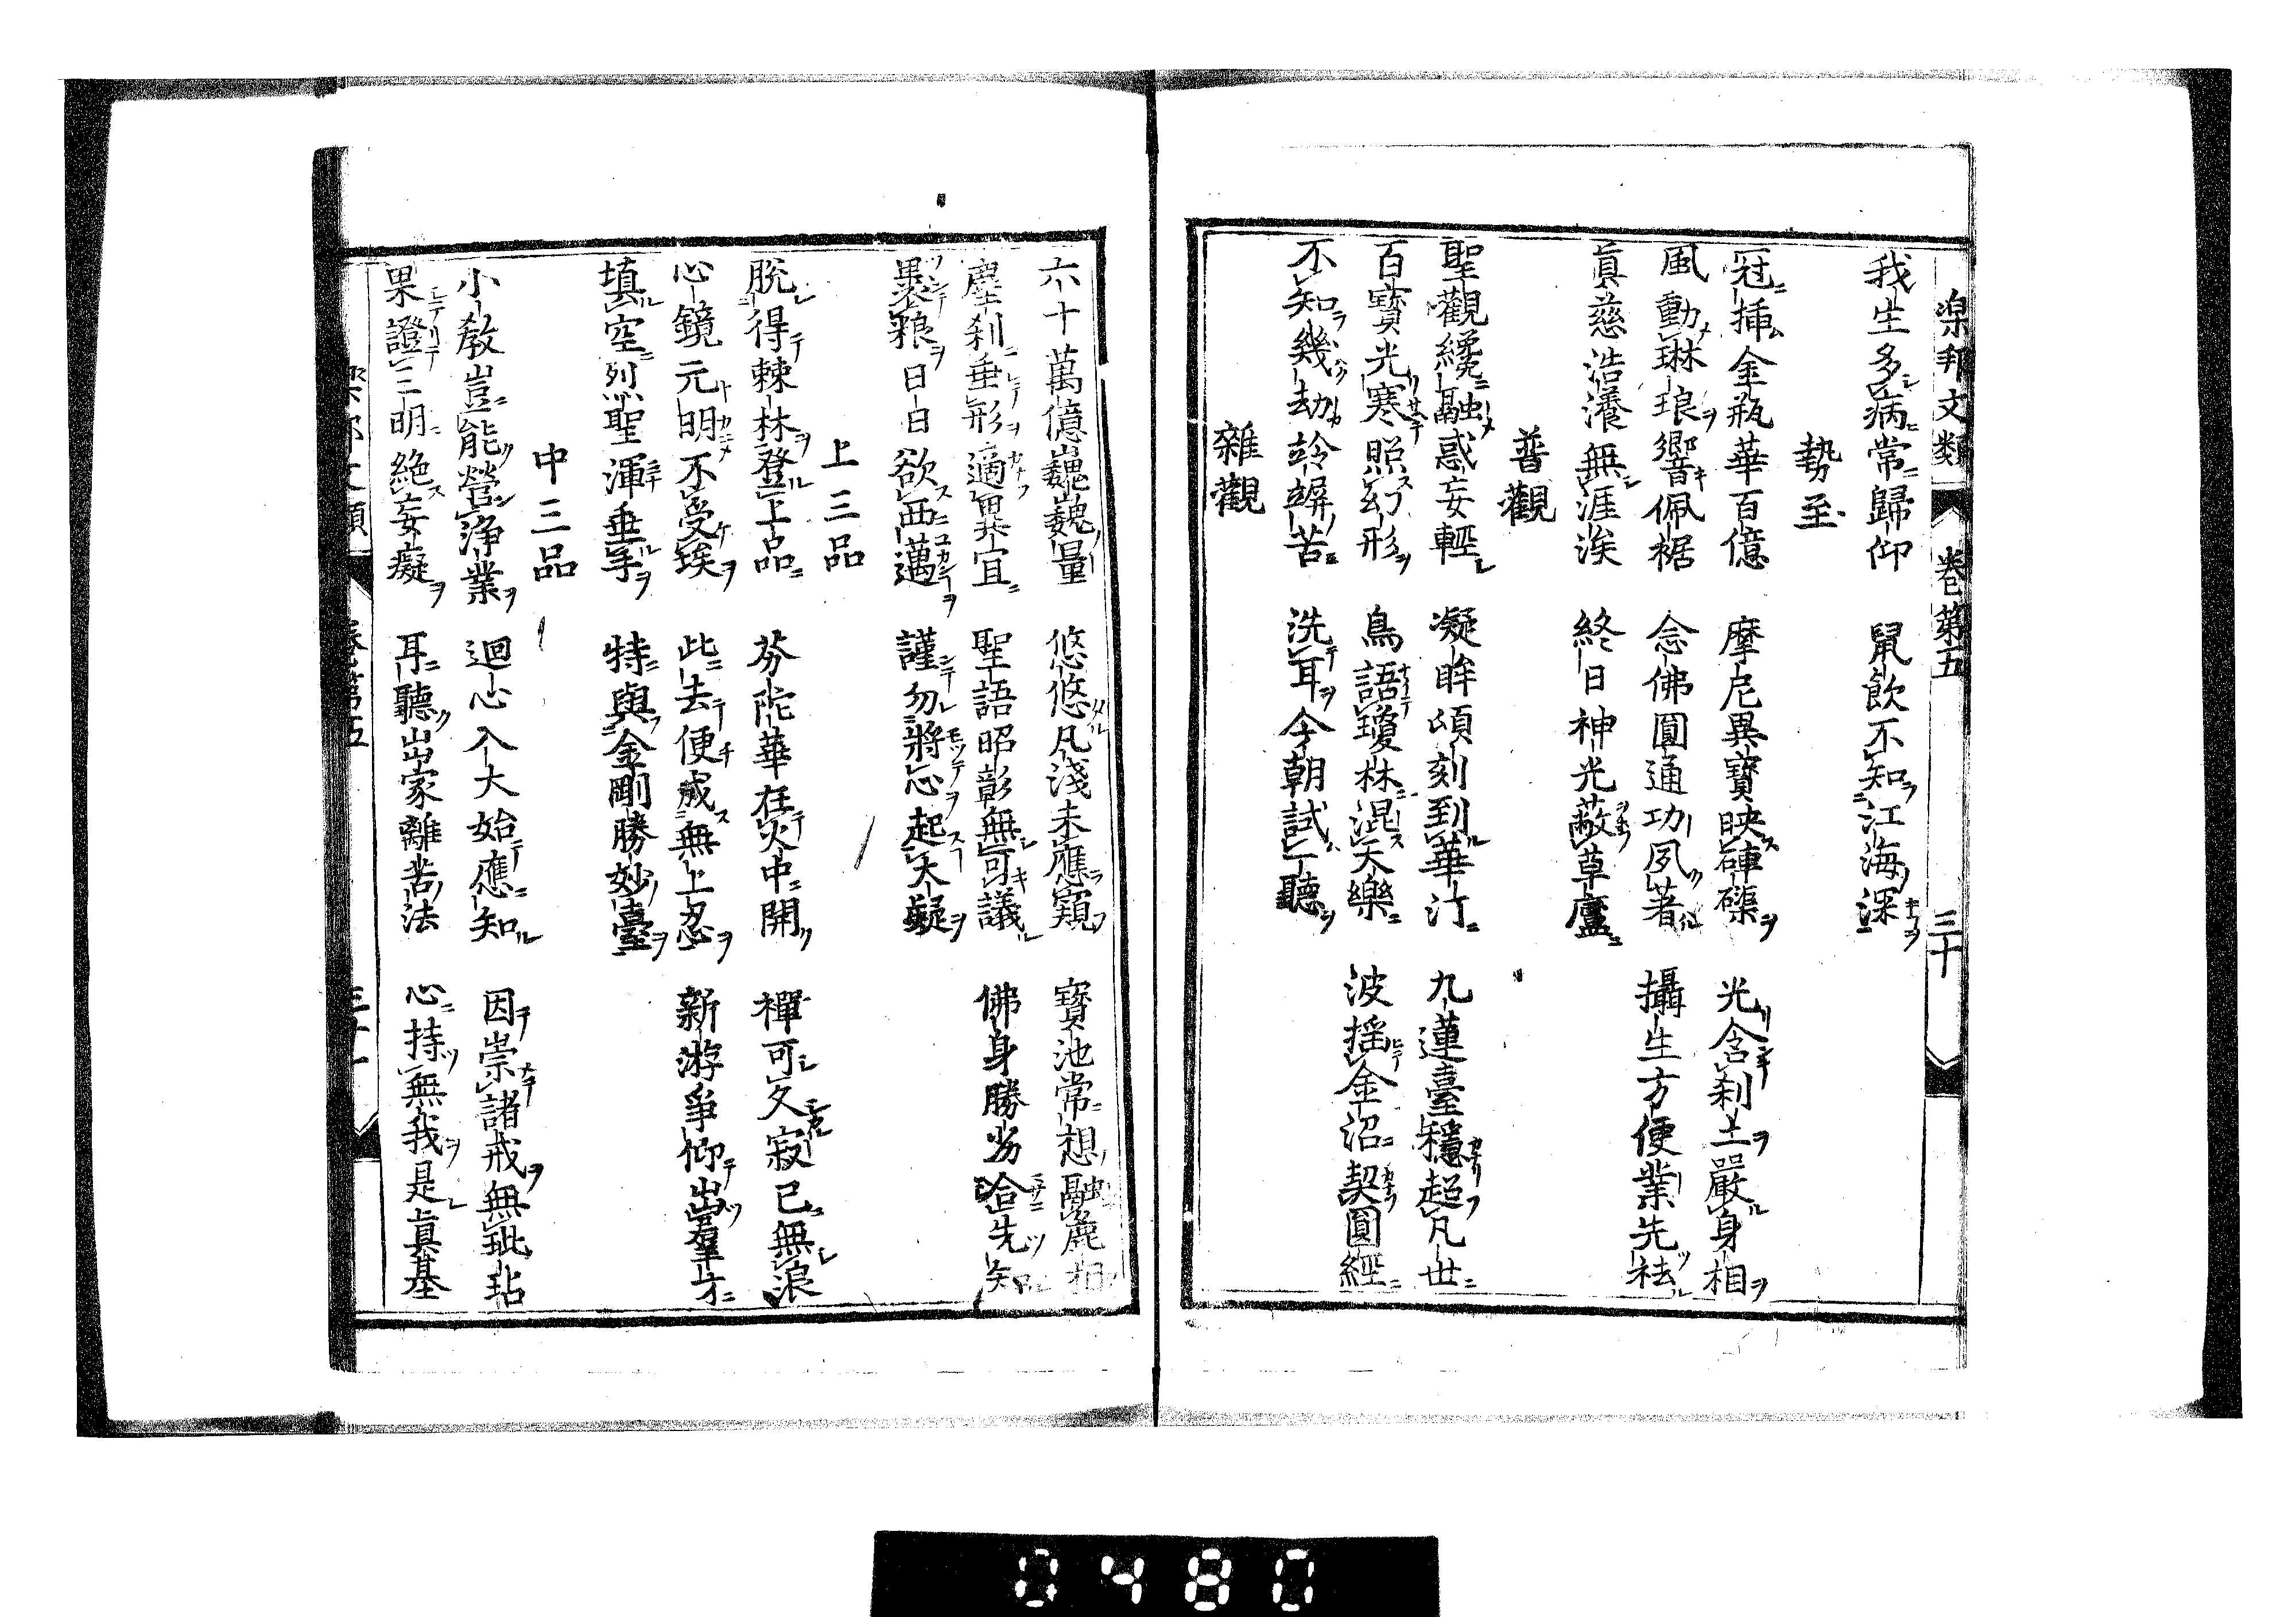 樂邦文類 卷第五 三十
我生多病常歸仰 鼠飲不知江海深
勢至
冠揷金瓶華百億 摩尼異寶映硨磲 光含刹土嚴身相
風動琳琅響佩裾 念佛圓通功夙著 攝生方便業先袪
眞慈浩瀁無涯涘 終日神光蔽草廬
普觀
聖觀纔融惑妄輕 凝眸頃刻到華汀 九蓮臺穩超凡世
百寶光寒照幻形 鳥語瓊林混天樂 波搖金沼契圓經
不知幾劫竛竮苦 洗耳今朝試一聽
雜觀
六十萬億巍巍量 悠悠凡淺未應窺 寶池常想融麁相
塵刹垂形適異宜 聖語昭彰無可議 佛身勝劣洽先知
裹粮日日欲西邁 謹勿將心起大疑
上三品
脫得棘林登上品 芬陀華在火中開 禪可久寂已無浪
心鏡元明不受埃 此去便成無上忍 新游爭仰出羣才
填空列聖渾垂手 特與金剛勝妙臺
中三品
小敎豈能營淨業 迴心入大始應知 因崇諸戒無玼玷
果證三明絶妄癡 耳聽出家離苦法 心持無我是眞基
樂邦文類 卷第五 三十一
0480